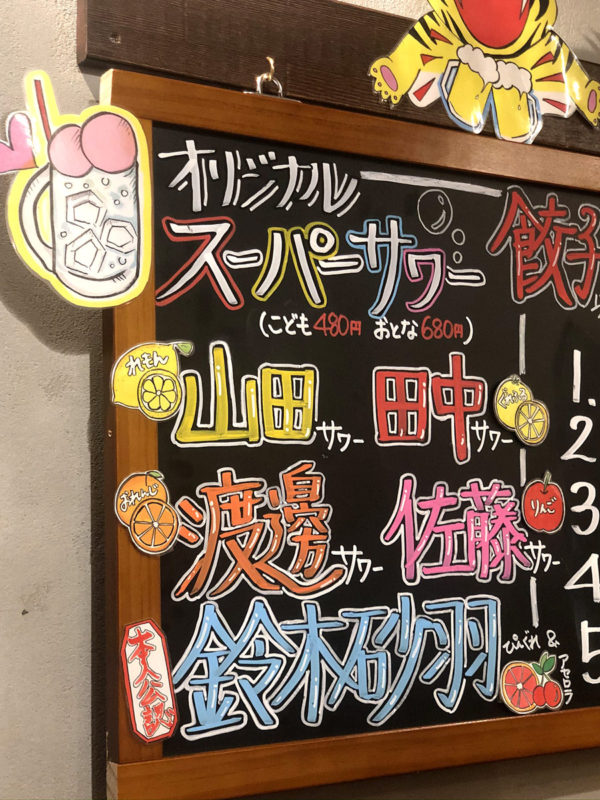 オリジナル
スーパーサワー
(こども480円 おとな680円)
れもん
山田サワー
田中サワー
ぐれふる
おれんじ
渡邊サワー
佐藤サワー
りんご
鈴木砂羽
ぴんぐれ &
アセロラ
本人公認
餃子
1.
2
3
4
5